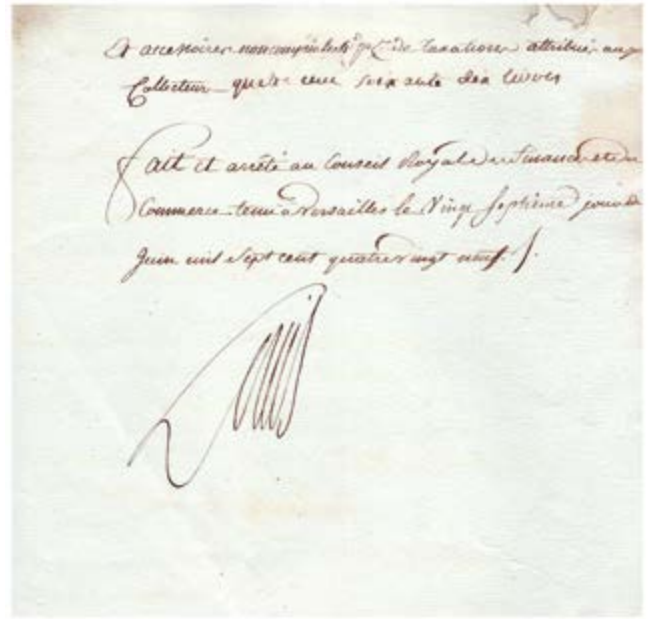 et accessoires non compris les 4d. p. £. de taxations attribués aux
Collecteurs quatre cent soixante dix livres
Fait et arrêté au Conseil Royal des finances et du
Commerce tenu à Versailles le Vingt Septième jour de
Juin mil Sept cent quatrevingt neuf. /.
Louis